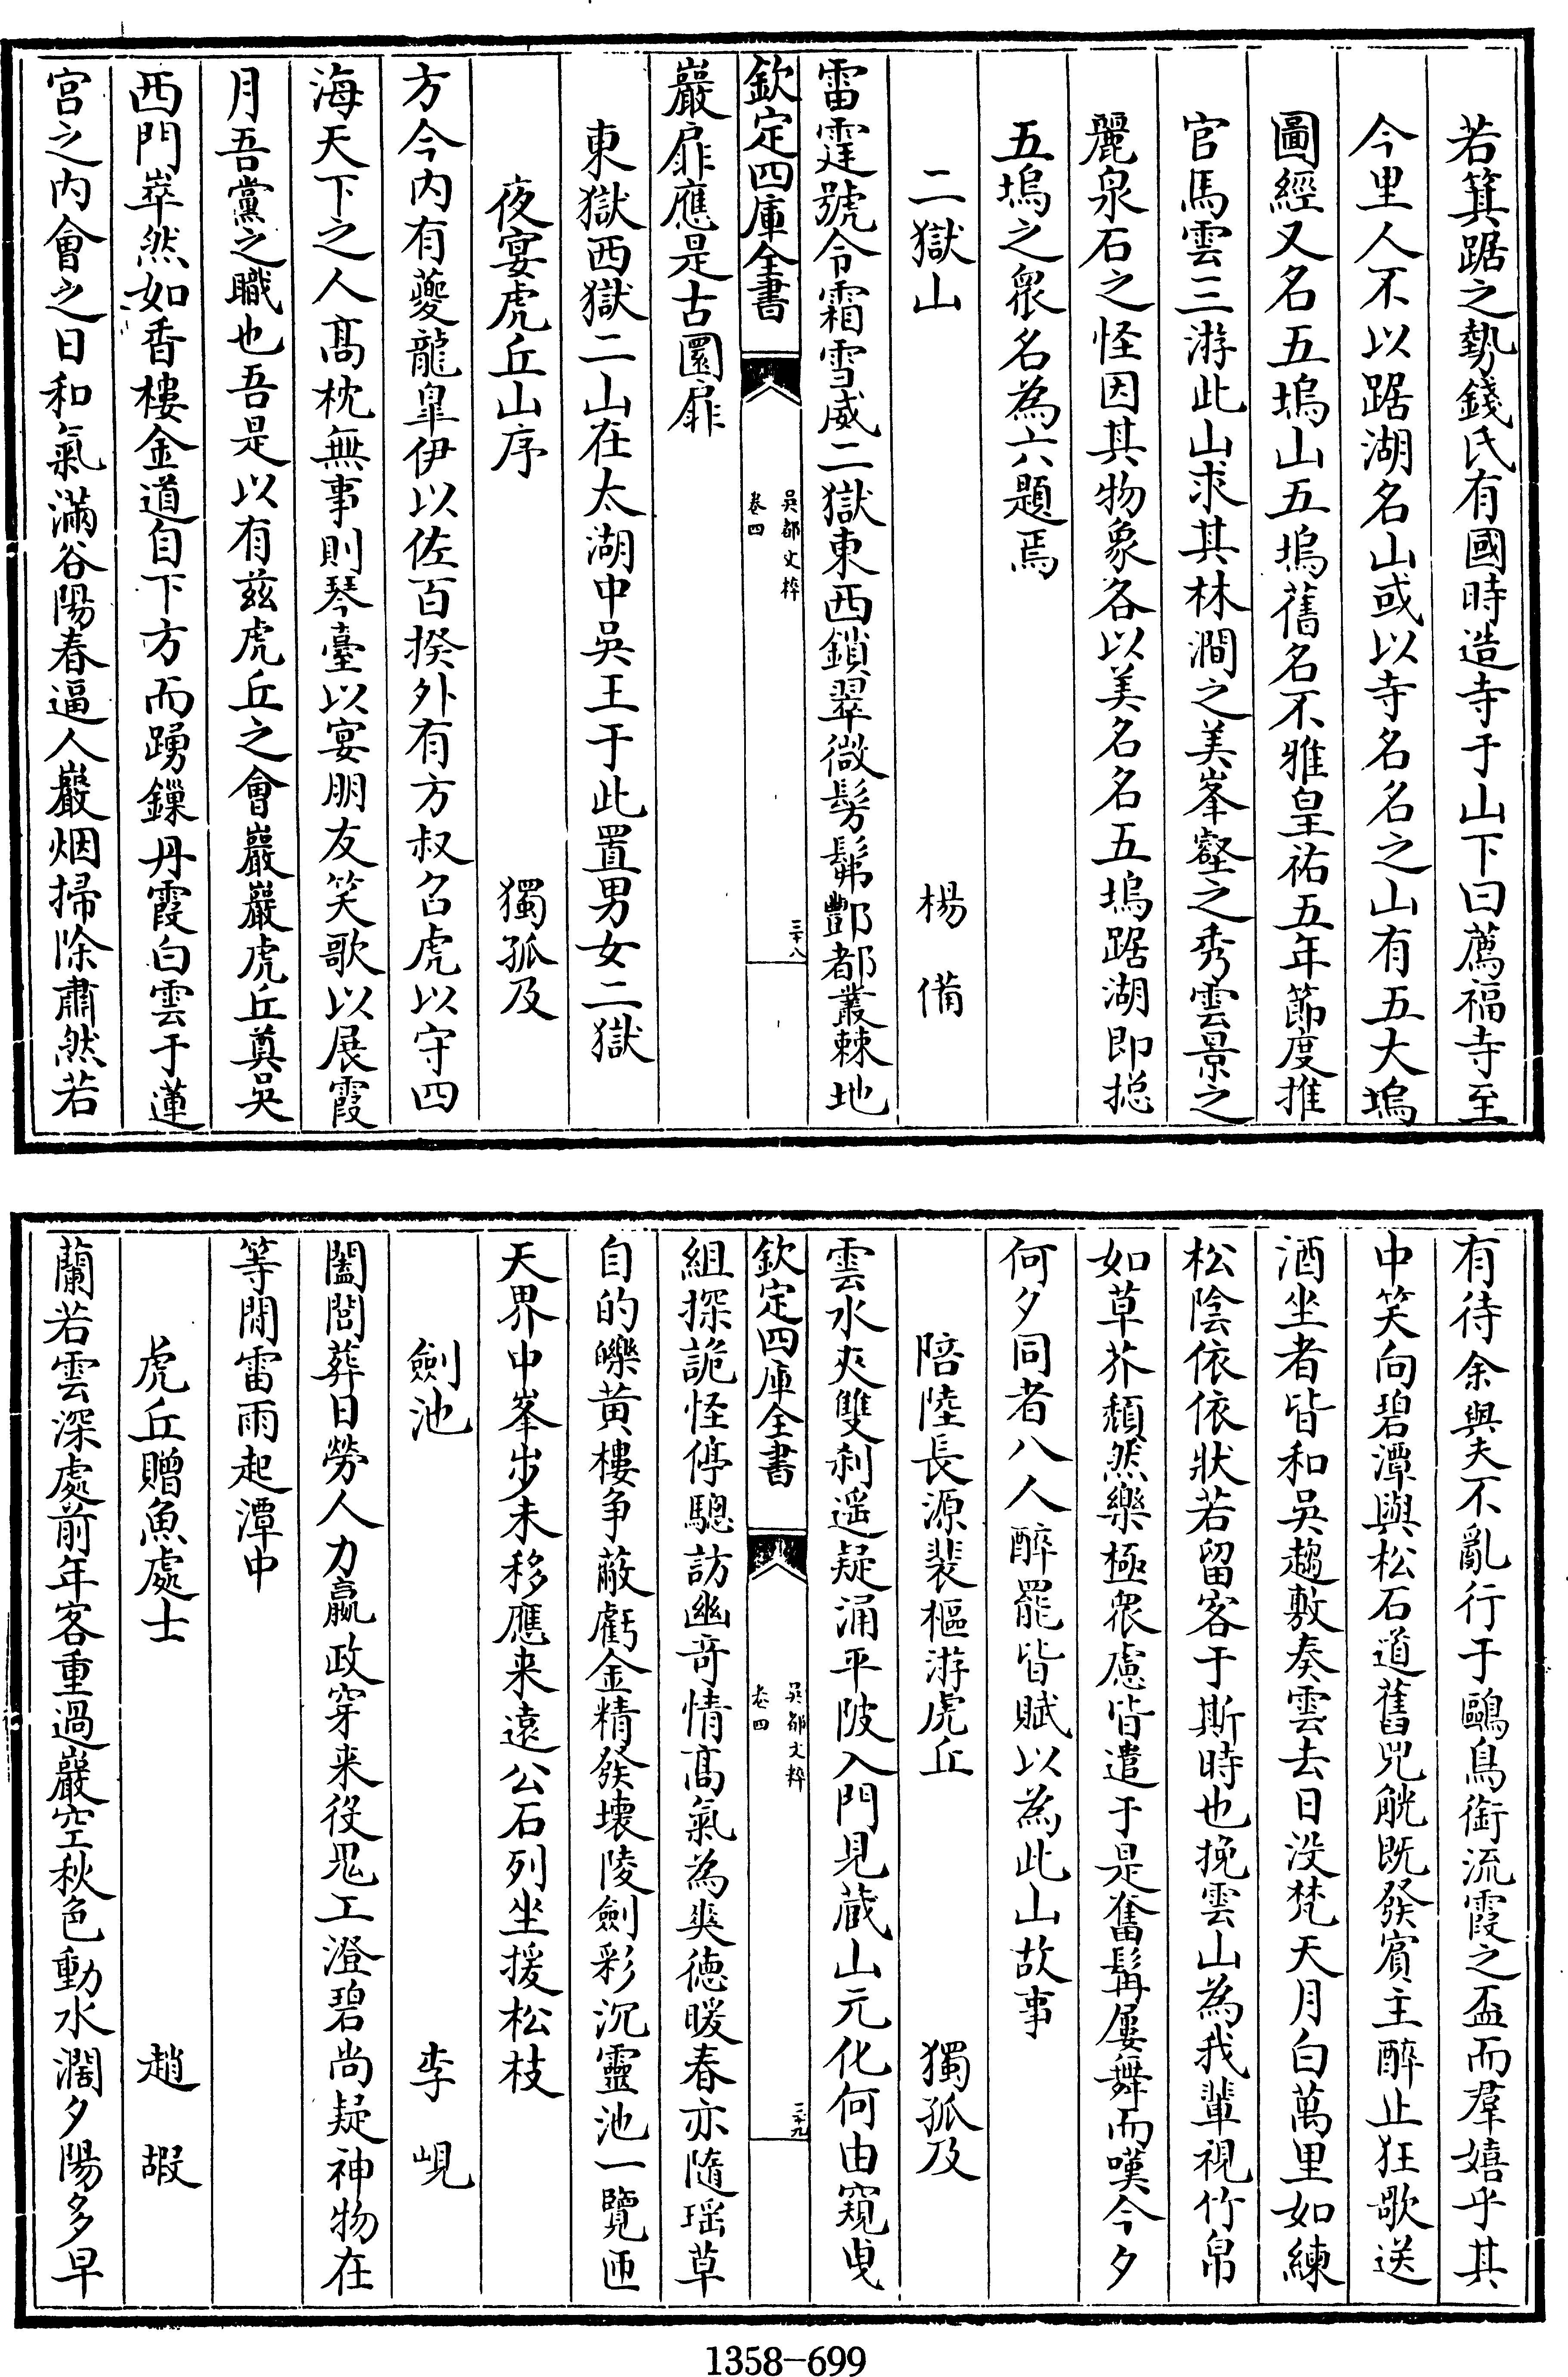 若箕踞之勢錢氏有國時造寺于山下曰薦福寺至
今里人不以踞湖名山或以寺名名之山有五大塢
圖經又名五塢山五塢舊名不雅皇祐五年節度推
官馬雲三游此山求其林澗之美峯壑之秀雲景之
麗泉石之怪因其物象各以美名名五塢踞湖即揔
五塢之衆名為六題焉
二獄山　楊備
雷霆號令霜雪威二獄東西鎖翠微髣髴酆都叢棘地
欽定四庫全書　吳都文粹　卷四　三十八
巖扉應是古圜扉
東獄西獄二山在太湖中吳王于此置男女二獄
夜宴虎丘山序　獨孤及
方今内有夔龍臯伊以佐百揆外有方叔召虎以守四
海天下之人髙枕無事則琴臺以宴朋友笑歌以展霞
月吾黨之職也吾是以有兹虎丘之會巖巖虎丘奠吳
西門崒然如香樓金道自下方而踴鏁丹霞白雲于蓮
宫之内會之日和氣滿谷陽春逼人巖烟掃除肅然若
有待余與夫不亂行于鷗鳥銜流霞之盃而羣嬉乎其
中笑向碧潭與松石道舊兕觥既發賓主醉止狂歌送
酒坐者皆和吳趨數奏雲去日没梵天月白萬里如練
松陰依依狀若留客于斯時也挽雲山為我輩視竹帛
如草芥頽然樂極衆慮皆遣于是奮髯屢舞而嘆今夕
何夕同者八人醉罷皆賦以為此山故事
陪陸長源裴樞游虎丘　獨孤及
雲水夾雙刹遥疑涌平陂入門見蔵山元化何由窺曵
欽定四庫全書　吳都文粹　卷四　三十九
組探詭怪停驄訪幽竒情髙氣為爽徳暖春亦隨瑶草
自的皪黄樓争蔽虧金精發壊陵劍彩沉靈池一覽匝
天界中峯步未移應来遠公石列坐援松枝
劍池　李峴
闔閭葬日勞人力嬴政穿来役鬼工澄碧尚疑神物在
等閒雷雨起潭中
虎丘贈魚處士　趙嘏
蘭若雲深處前年客重過巖空秋色動水濶夕陽多早
1358-699